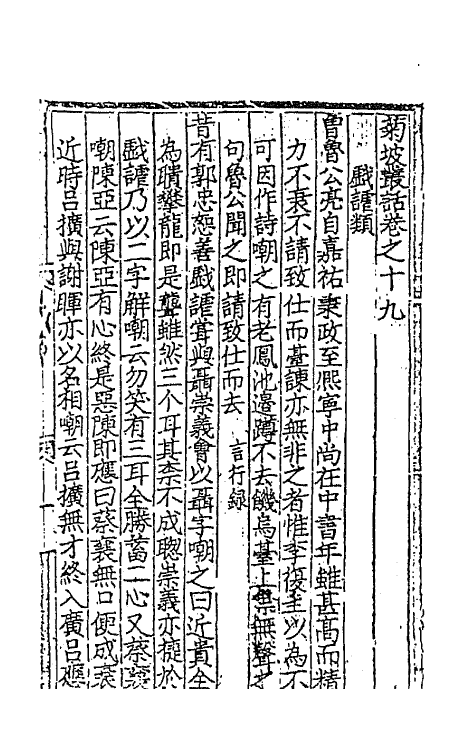 菊坡叢話卷之十九
戲謔類
曾魯公亮自嘉祐秉政至熙寧中尚在中書年雖甚高而精
力不衰不請致仕而臺諫亦無非之者惟李復圭以為不
可因作詩嘲之有老鳳池邊蹲不去饑烏臺上噤無聲之
句魯公聞之即請致仕而去 言行録
昔有郭忠恕善戲謔嘗與聶崇義會以聶字嘲之曰近貴全
為聵攀龍即是聾雖然三个耳其柰不成聦崇義亦搥於
戲謔乃以二字解嘲云勿笑有三耳全勝畜二心又蔡襄
嘲陳亞云陳亞有心終是惡陳即應曰蔡襄無口便成衰
近時呂擴與謝暉亦以名相嘲云呂擴無才終入廣呂應